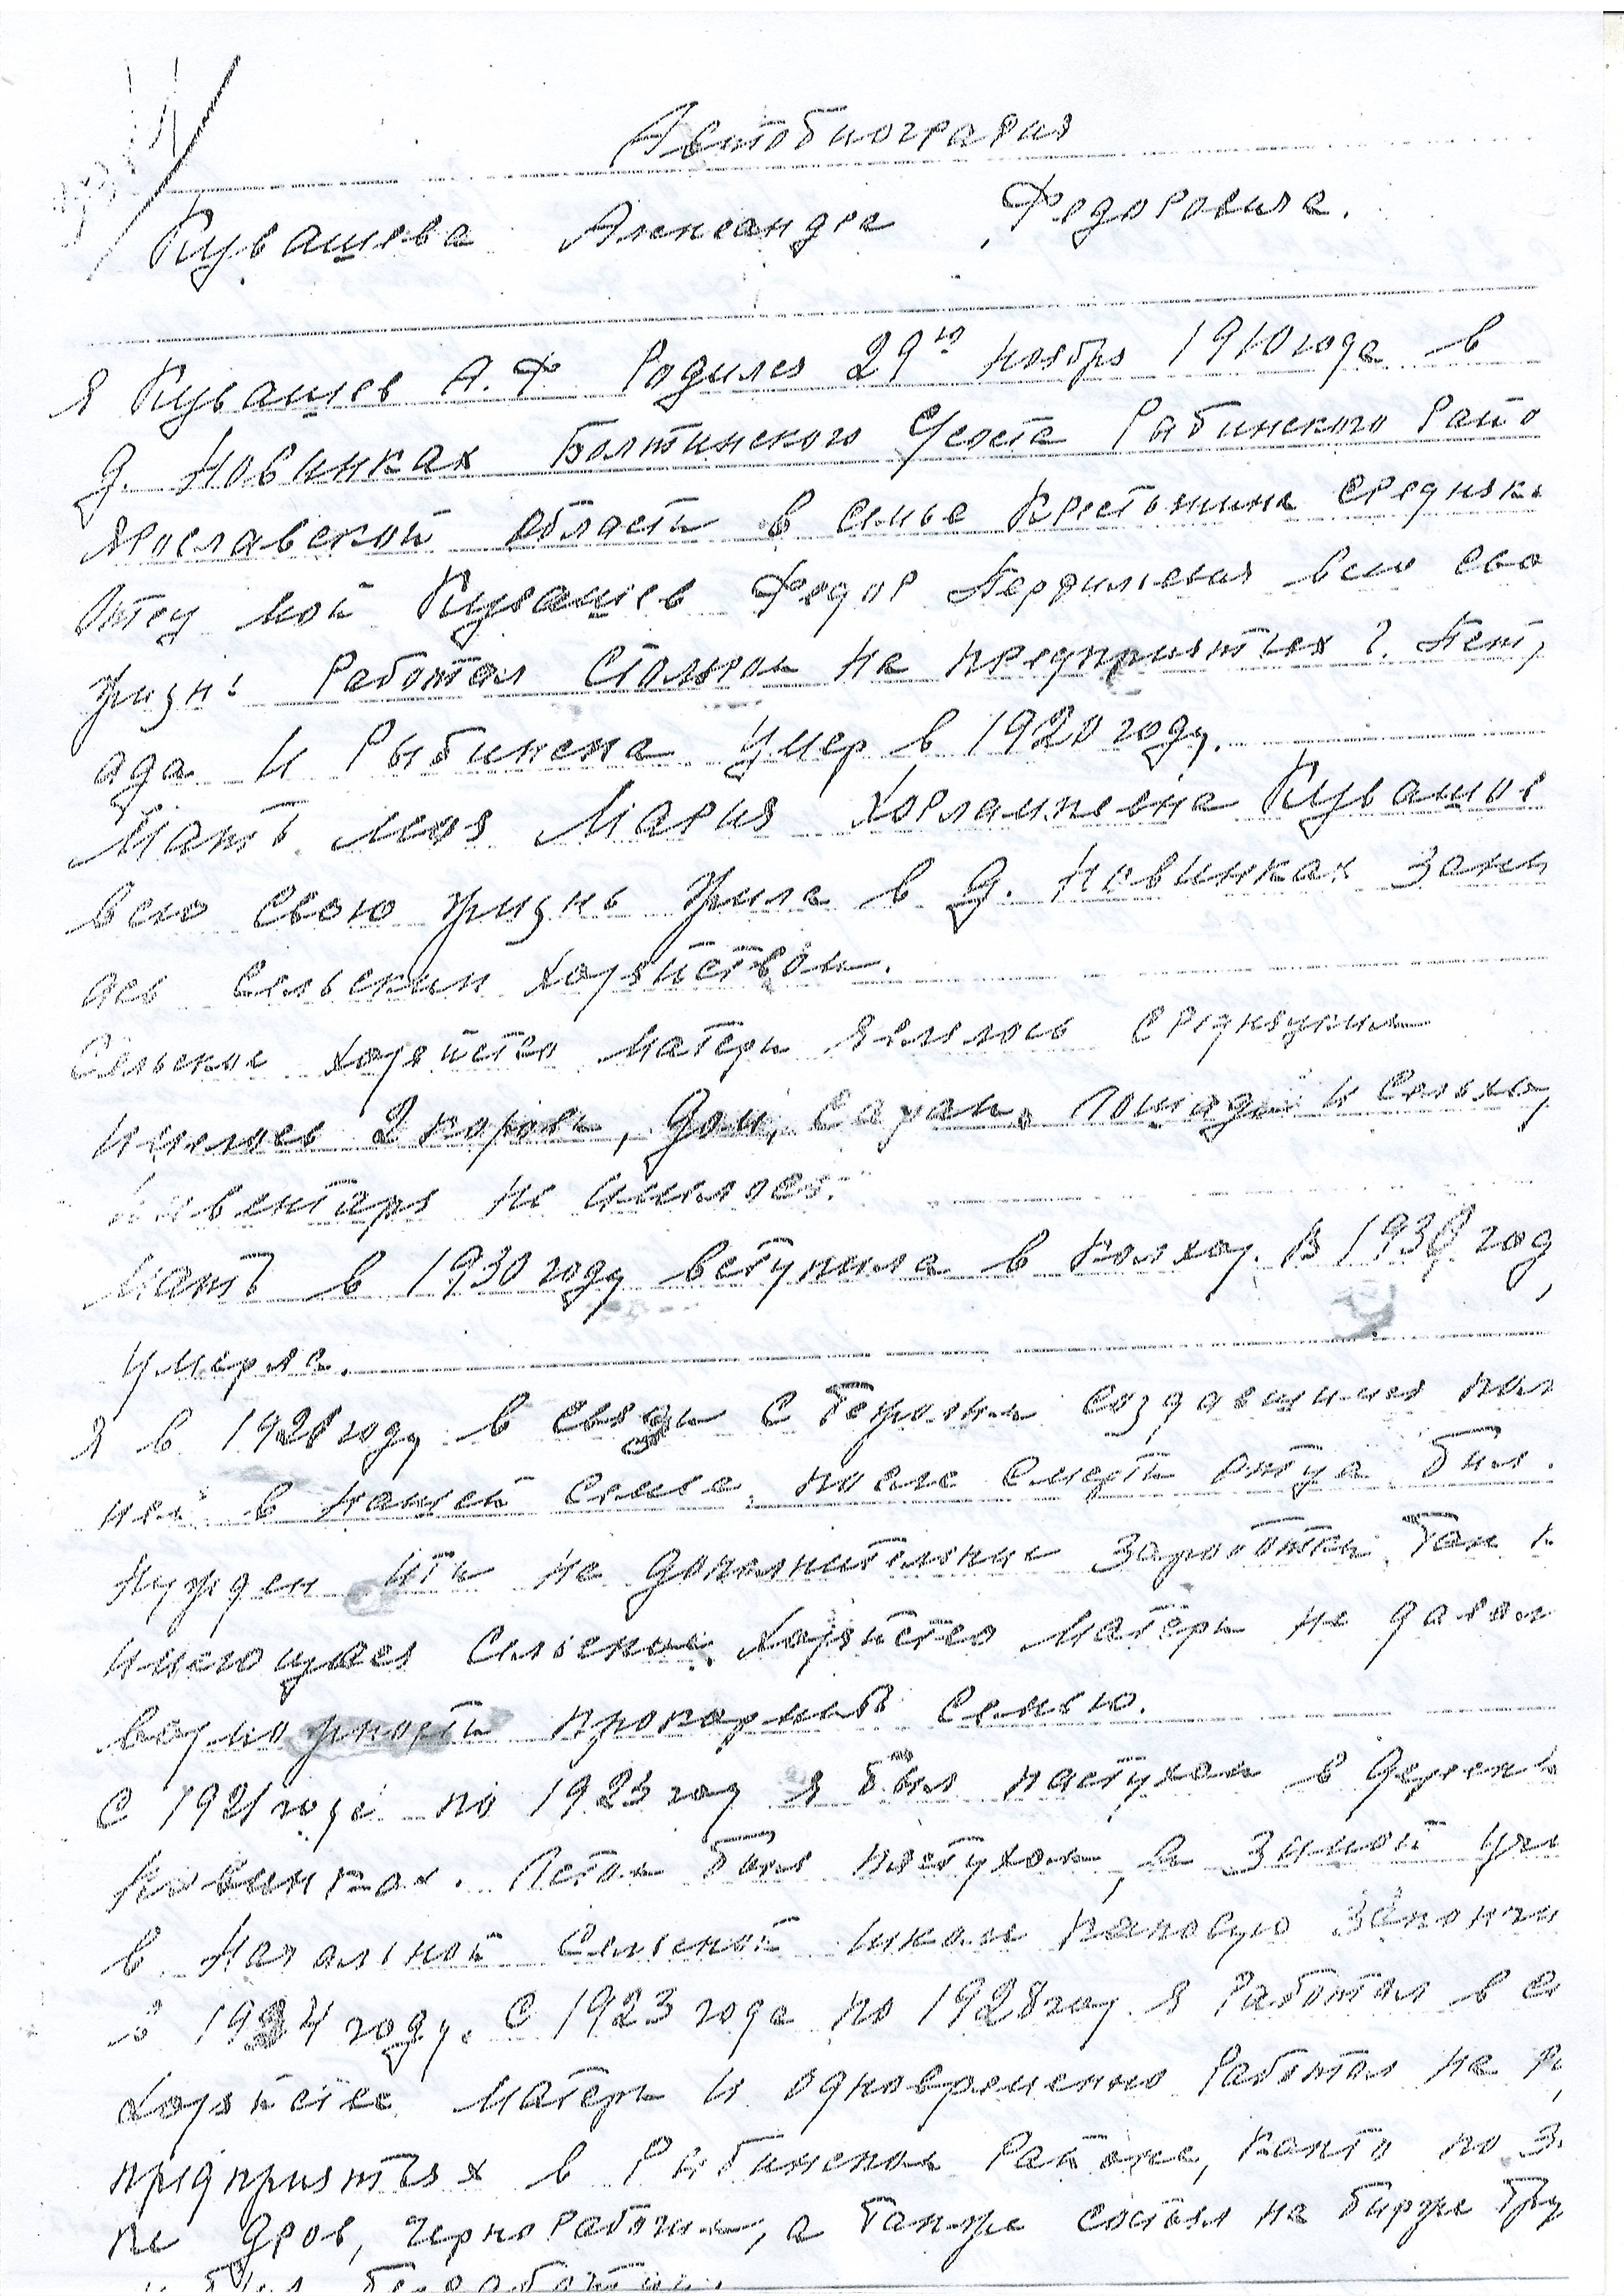 Автобиография
Кувашева Александра Федоровича.
Я Кувашев А.Ф Родился 29го ноября 1910 года в
д. Новинках Болтинского Рыбинского Райо
Ярославской области в семье Крестьянина средняка
Отец мой Кувашев Федор всю сво
жизнь Работал Столяром на предприятиях г. Петр
ада и Рыбинска Умер в 1920 году.
Мать моя Мария Харлампевна Кувашов
всю свою жизнь жила в д. Новинках зани
ась сельским хозяйством.
Сельское хозяйство матери являлось
имелось 2 коровы, дом, сарай, лошади и сельхоз
инвентаря не имелось.
Мать в 1930 году вступила в колхоз. В год
умерла.
Я в году в связи с создавшимся пол
ией в нашей семье после смерти отца был
нужден ити на дополнительные заработки так к
имеющаес Сельское хозяйство матери не давал
возможности прокормить семью.
С 1921 года по 1923 год я был пастухом в дерев
Новинках. Летом был пастухом, а зимой учи
в начальной сельской школе закончи
в году. С 1923 года по 1928 год я Работал в с
хозяйстве матери и одновременно Работал на
предприятьях в Рыбинском Районе, кокто по за
ке дров, чернорабочим, а также состоял на бирже тру
и был безработным.